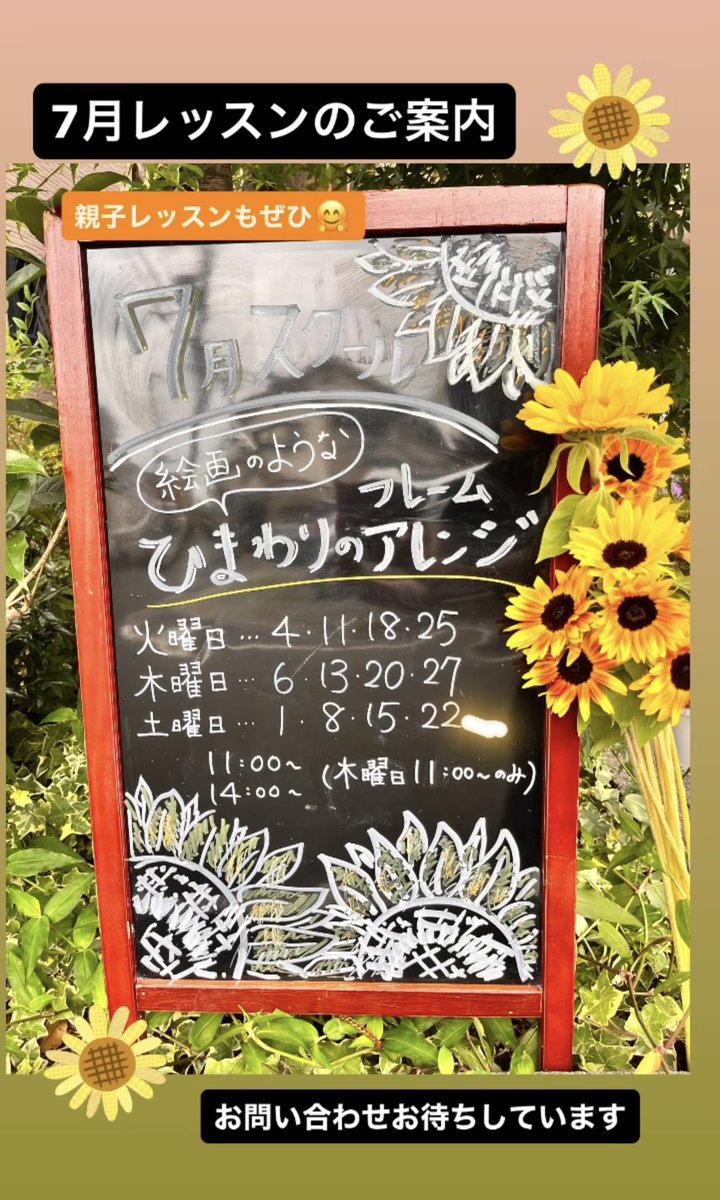 7月レッスンのご案内
親子レッスンもぜひ🤗
7月スクール
絵画のような
フレーム
ひまわりのアレンジ
火曜日…4・11・18・25
木曜日…6・13・20・27
土曜日…1・8・15・22
11:00〜(木曜日11:00〜のみ)
14:00〜
お問い合わせお待ちしています